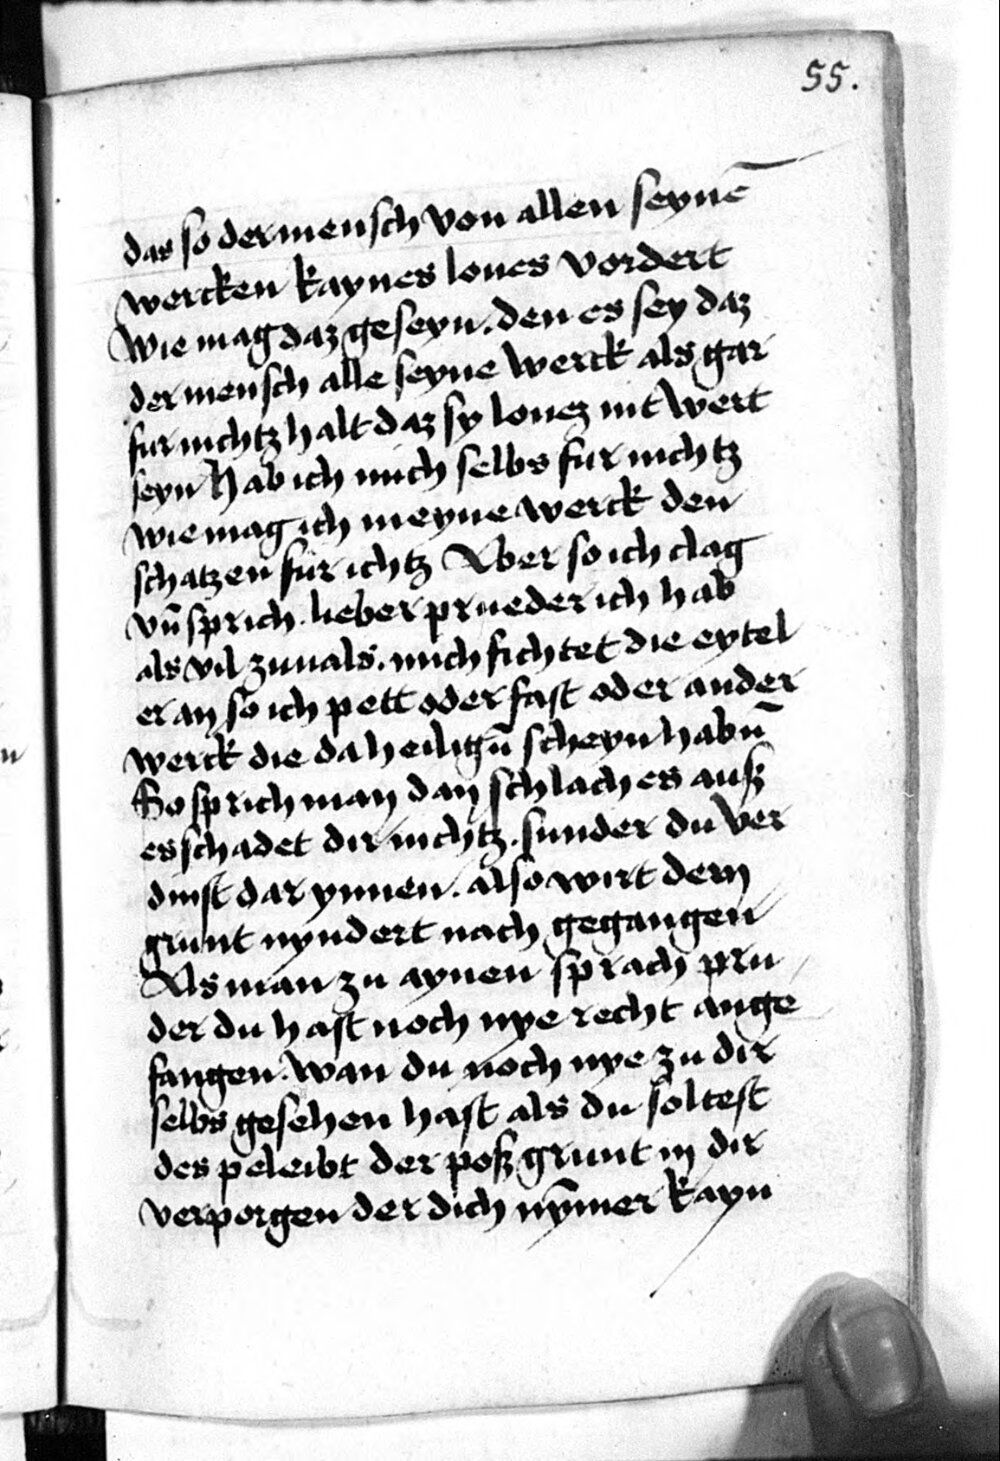 55.
das so der mensch von allen seynē
wercken kaynes lones vordert
wie mag daz geseyn. den es sey daz
der mensch alle seyne werck als gar
fur nichtz halt daz sy lonez nit wert
seyn Hab ich mich selbs fur nichtz
wie mag ich meyne werck den
schatzen für ichtz Aber so ich clag
vn̄ sprich. lieber prueder ich hab
als vil zuuals. mich fichtet die eytel
er an so ich pett oder fast oder ander
werck die da heiligū scheyn habn̄
So sprich man dan schlach es auß
es schadet dir nichtz. sunder du ver
dinst dar ynnen. also wirt dem
grunt nyndert nach gegangen
Als man zu aynen sprach pru
der du hast noch nye recht ange
fangen. wan du noch nye zu dir
selbs gesehen hast als du soltest
des peleibt der poß grunt in dir
verporgen der dich nym̄er kayn